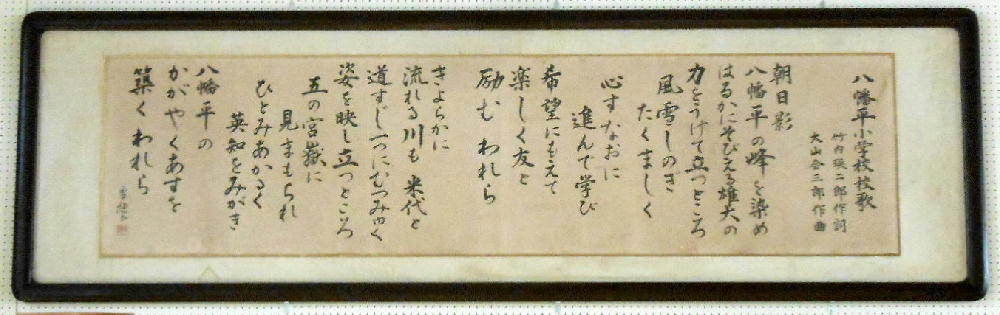 八幡平小学校校歌
竹内瑛二郎作詞
大山会三郎作曲
朝日影
八幡平の峰を染め
はるかにそびえる雄大の
力をうけて立つところ
風雪しのぎ
たくましく
心すなおに
進んで学び
希望にもえて
楽しく友と
励む われら
きよらかに
流れる川も 米代と
道すじ一つにむつみゆく
姿を映し立つところ
五の宮嶽に
見まもられ
ひとみあかるく
英知をみがき
八幡平の
かがやくあすを
築く われら